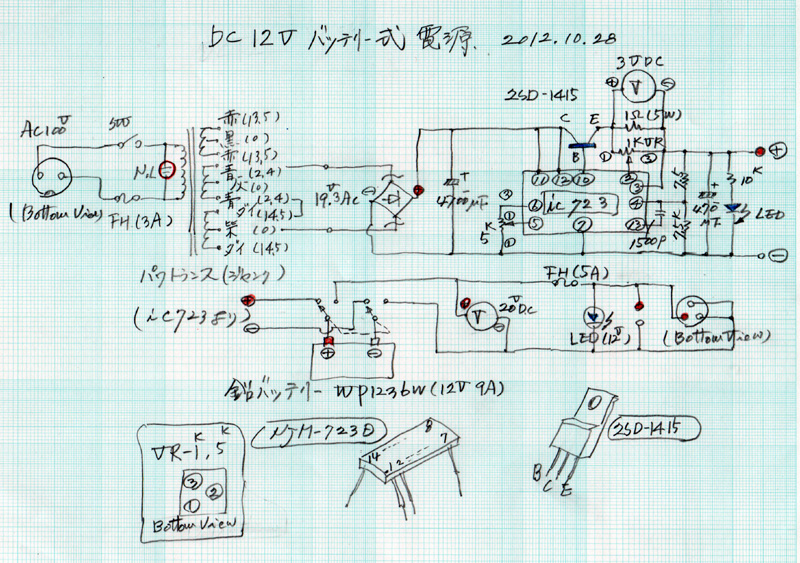 DC 12V バッテリー式 電源 2012.10.28
3VDC
V
2SD-1415
1Ω(5W)
C
E
B
1KVR
① ③
AC100V
SW
NL
(Bottom View)
FH(3A)
赤(13,5)
黒(0)
赤(13,5)
青(2,4)
灰(0)
青(2,4)
ダイ(14,5)
紫(0)
ダイ(14,5)
19.3V AC
4700μF
5K
ic 723
⑪ ⑫ ⑩
② ③ ④ ⑬
⑥ ⑤ ⑦
1500P
10K
470μF
LED
パワトランス(ジャンク)
(ic723より)
FH(5A)
20V DC
V
LED(12V)
(Bottom View)
鉛バッテリー WP1236W(12V 9A)
VR-1K,5K
③
②
①
Bottom View
NJM-723D
14
1 2
8
7
2SD-1415
B
C
E